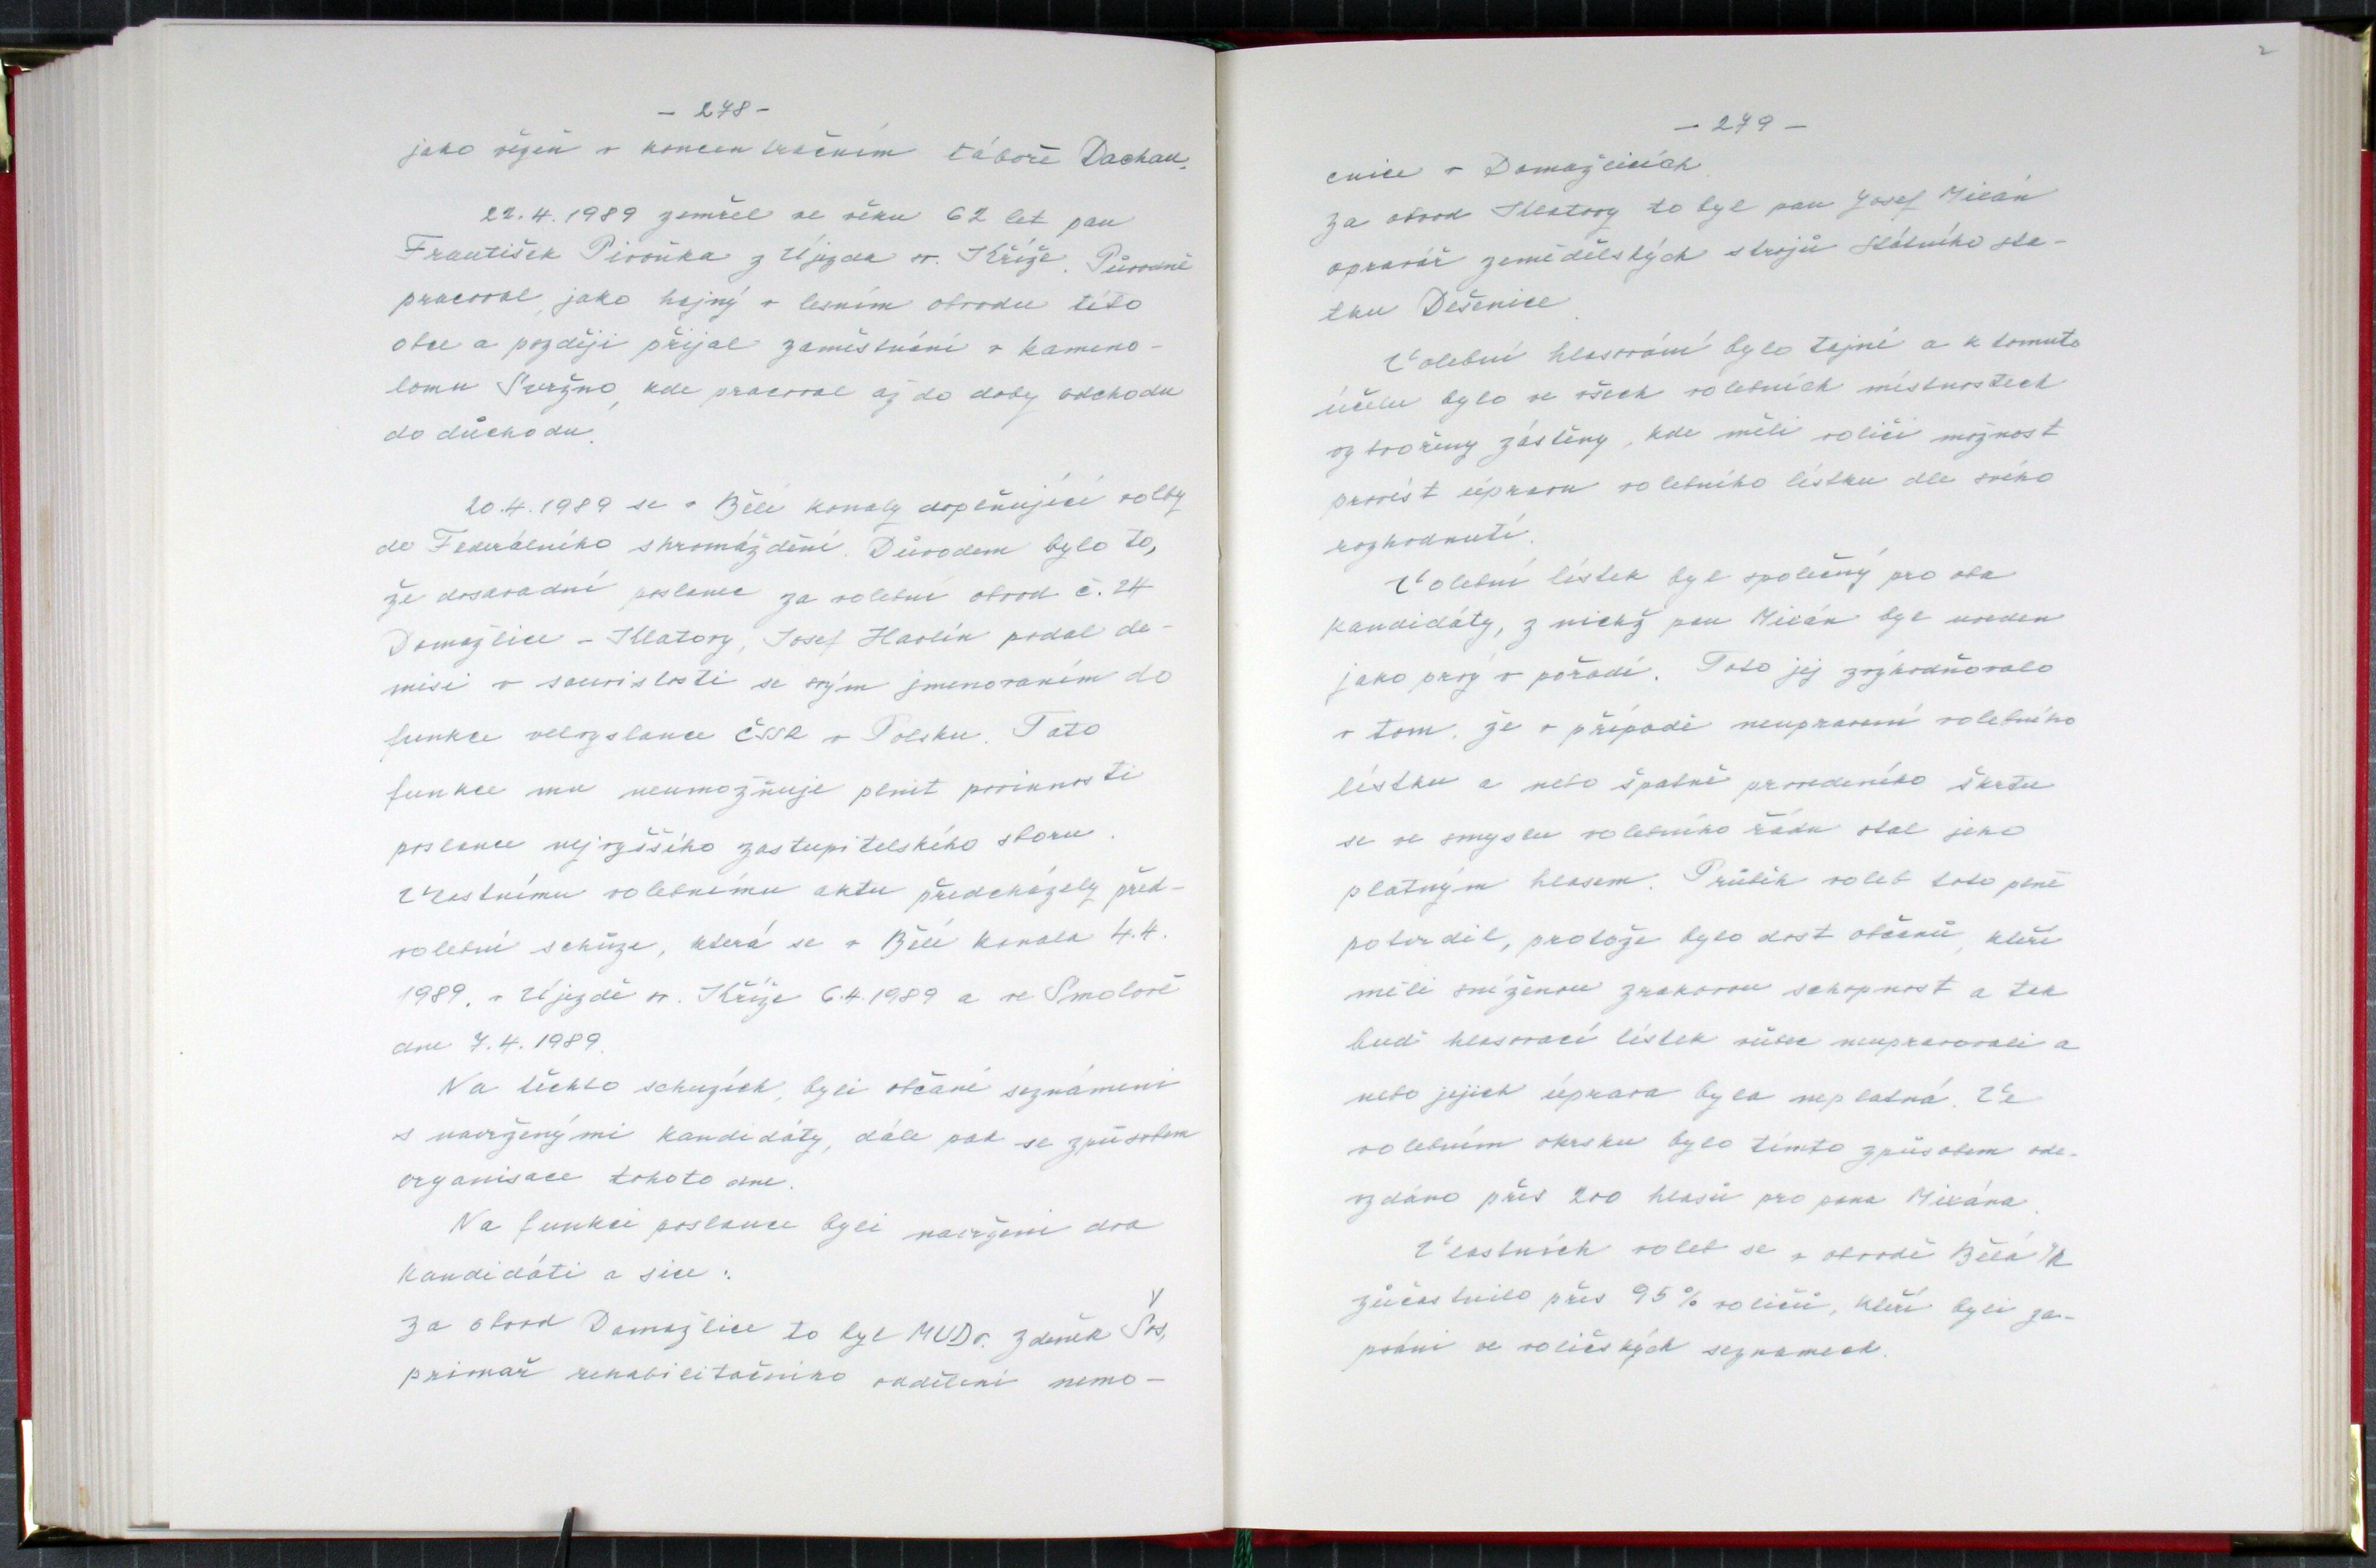 - 278 -
jako vězeň v koncentračním táboře Dachau.
22.4.1989 zemřel ve věku 62 let pan
František Pivoňka z Újezda sv. Kříže. Původně
pracoval, jako hajný v lesním obvodu této
obce a později přijal zaměstnání v kameno-
lomu Svržno, kde pracoval až do doby odchodu
do důchodu.
20.4.1989 se v Bělé konaly doplňující volby
do Federálního shromáždění. Důvodem bylo to,
že dosavadní poslanec za volební obvod č. 24
Domažlice - Klatovy, Josef Havlín podal de-
misi v souvislosti se svým jmenováním do
funkce velvyslance ČSSR v Polsku. Tato
funkce mu neumožňuje plnit povinnosti
poslance nejvyššího zastupitelského sboru.
Vlastnímu volebnímu aktu předcházely před-
volební schůze, která se v Bělé konala 4.4.
1989, v Újezdě sv. Kříže 6.4.1989 a ve Smolově
dne 7.4.1989.
Na těchto schuzích, byli občané seznámeni
s navrženými kandidáty, dále pak se způsobem
organisace tohoto dne.
Na funkci poslance byli navrženi dva
kandidáti a sice:
za obvod Domažlice to byl MUDr. Zdeněk Šos,
primař rehabilitačního oddělení nemo-
2
- 279 -
cnice v Domažlicích.
za obvod Klatovy to byl pan Josef Mikán
opravář zemědělských strojů Státního sta-
tku Dešenice.
Volební hlasování bylo tajné a k tomuto
účelu bylo ve všech volebních místnostech
vytvořeny zástěny, kde měli voliči možnost
provést úpravu volebního lístku dle svého
rozhodnutí.
Volební lístek byl společný pro oba
kandidáty, z nichž pan Mikán byl uveden
jako prvý v pořadí. Toto jej zvýhodňovalo
v tom, že v případě neupravení volebního
lístku a nebo špatně provedeného škrtu
se ve smyslu volebního řádu stal jeho
platným hlasem. Průběh voleb toto plně
potvrdil, protože bylo dost občanů, kteří
měli sníženou zrakovou schopnost a tak
buď hlasovací lístek vůbec neupravovali a
nebo jejich úprava byla neplatná. Ve
volebním okrsku bylo tímto způsobem ode-
vzdáno přes 200 hlasů pro pana Mikána.
Vlastních voleb se v obvodě Bělá /R
zúčastnilo přes 95 % voličů, kteří byli za-
psáni ve voličských seznamech.